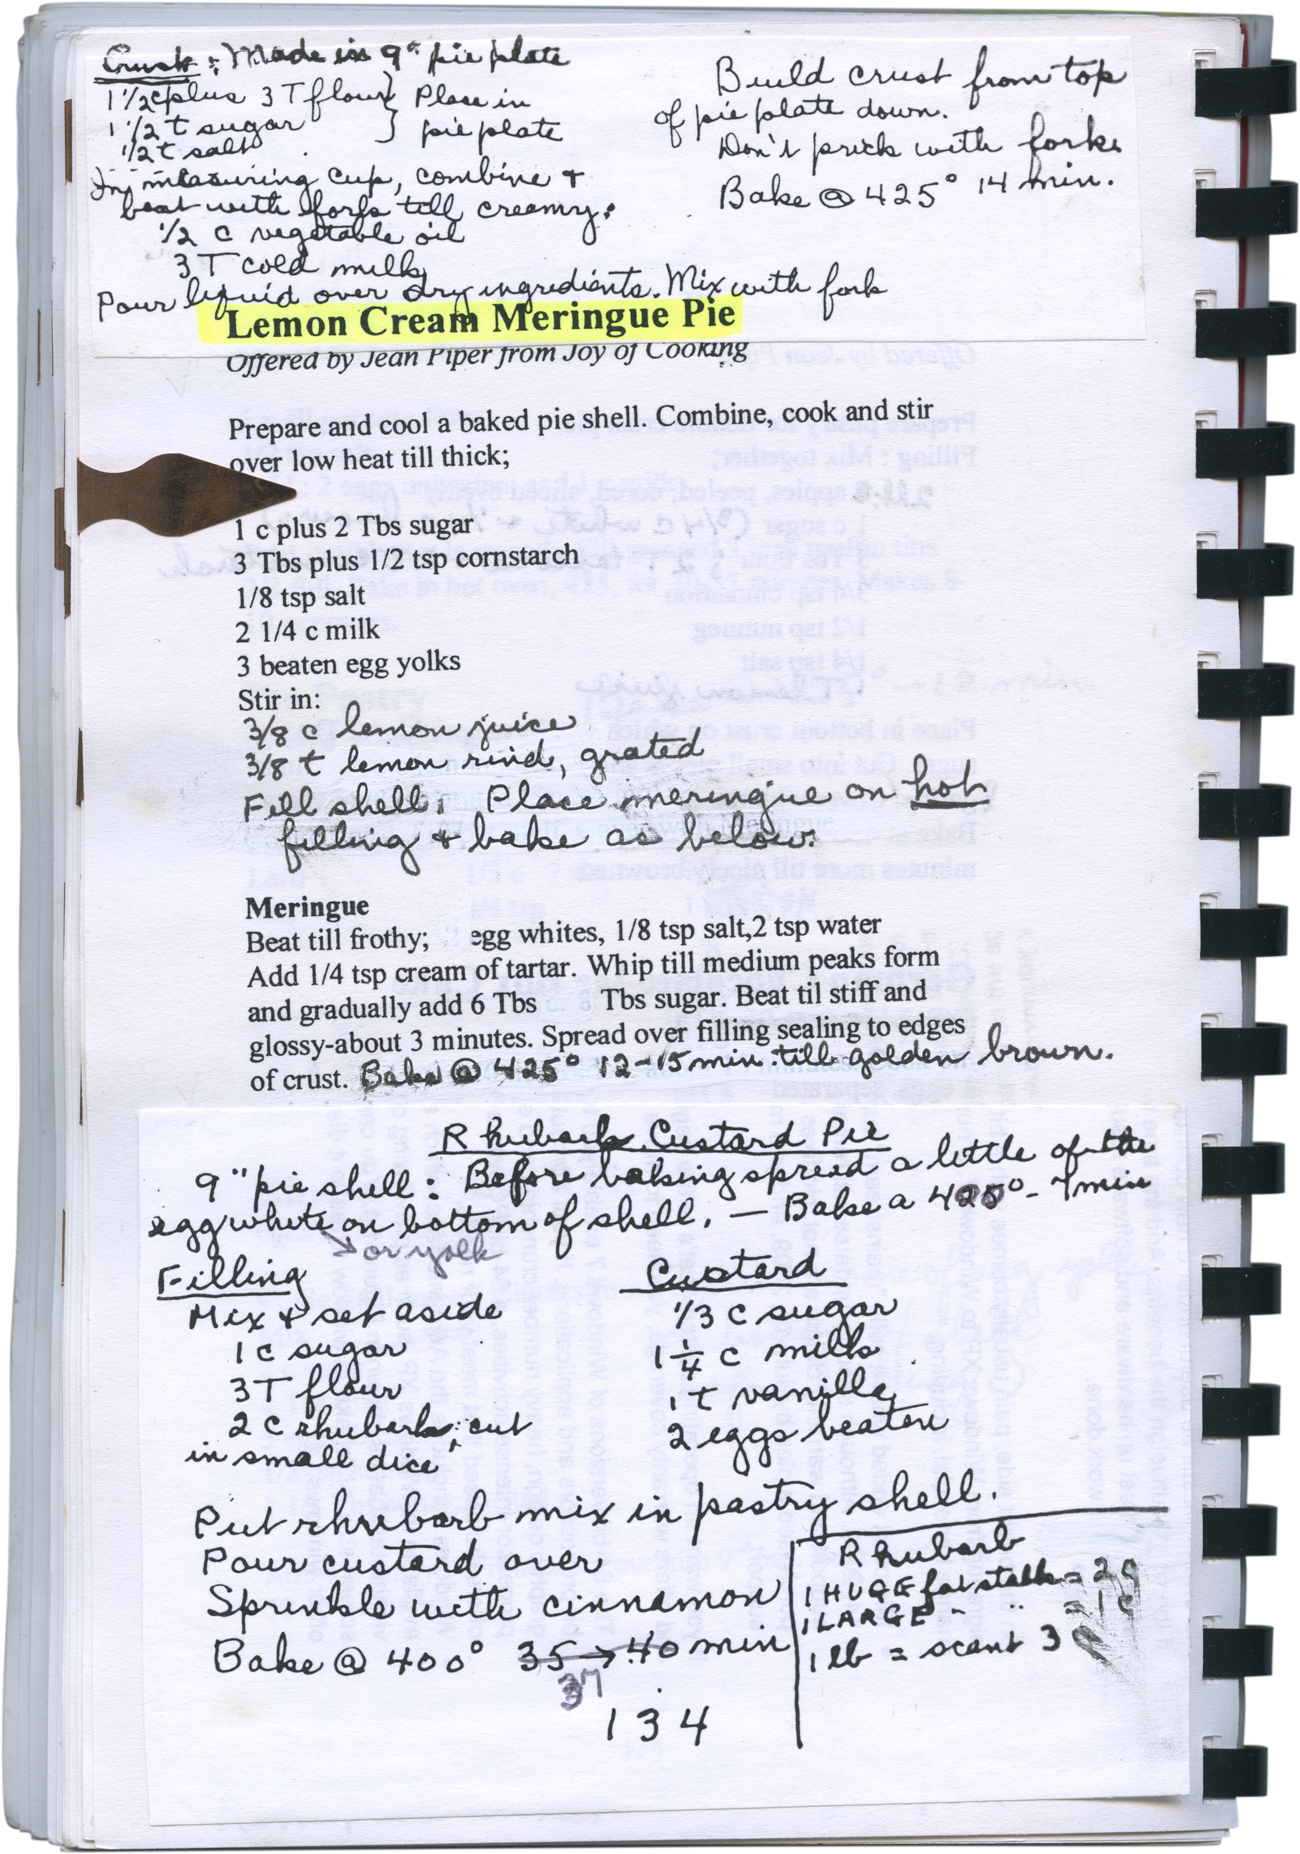 Crust: Made in 9" pie plate
1 1/2 c plus 3 T flour } Place in
1 1/2 t sugar } pie plate
1/2 t salt
In measuring cup, combine +
beat with fork till creamy:
1/2 c vegetable oil
3 T cold milk
Pour liquid over dry ingredients. Mix with fork
Build crust from top
of pie plate down.
Don't prick with fork.
Bake @ 425° 14 min.
Lemon Cream Meringue Pie
Offered by Jean Piper from Joy of Cooking
Prepare and cool a baked pie shell. Combine, cook and stir
over low heat till thick;
1 c plus 2 Tbs sugar
3 Tbs plus 1/2 tsp cornstarch
1/8 tsp salt
2 1/4 c milk
3 beaten egg yolks
Stir in:
3/8 c lemon juice
3/8 t lemon rind, grated
Fill shell; Place meringue on hot
filling + bake as below:
Meringue
Beat till frothy; egg whites, 1/8 tsp salt,2 tsp water
Add 1/4 tsp cream of tartar. Whip till medium peaks form
and gradually add 6 Tbs Tbs sugar. Beat til stiff and
glossy-about 3 minutes. Spread over filling sealing to edges
of crust. Bake @ 425° 12-15 min. till golden brown.
Rhubarb Custard Pie
9" pie shell: Before baking spread a little of the
egg white on bottom of shell. — Bake a 425° - 7 min
→ or yolk
Filling
Mix + set aside
1 c sugar
3 T flour
2 c rhubarb, cut
in small dice
Custard
1/3 c sugar
1 1/4 c milk
1 t vanilla
2 eggs beaten
Put rhubarb mix in pastry shell.
Pour custard over
Sprinkle with cinnamon
Bake @ 400° 35 → 40 min
37
Rhubarb
1 HUGE fat stalk = 2 c
1 LARGE " " = 1 c
1 lb = scant 3
134